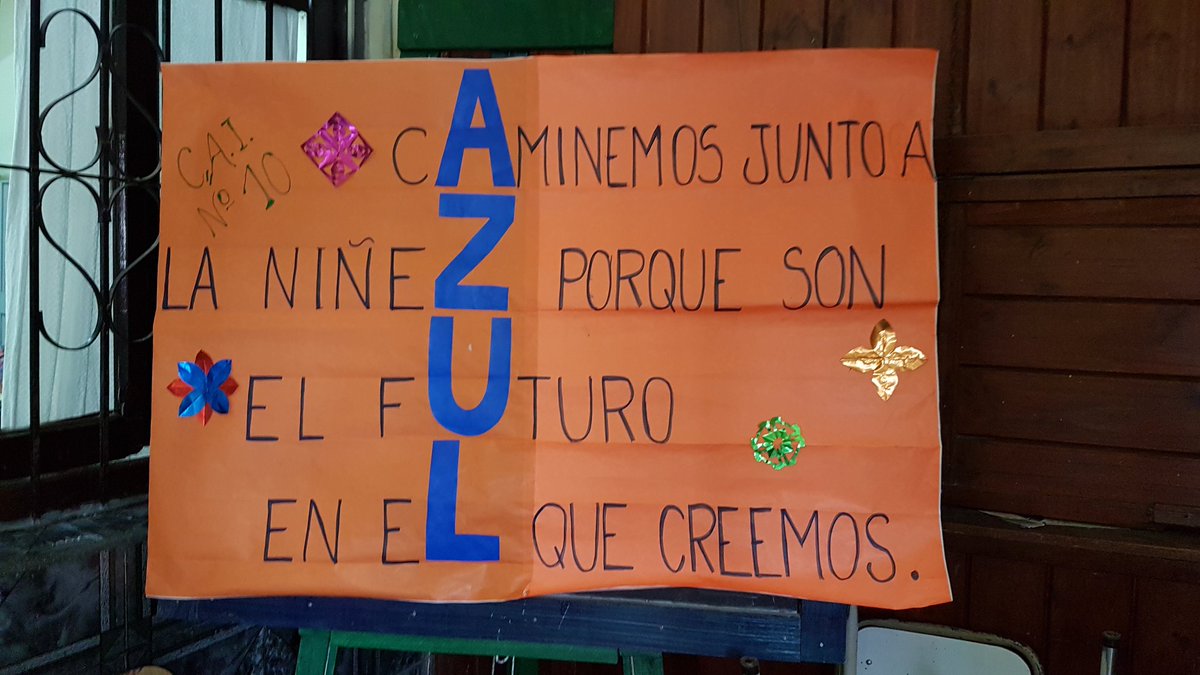 C.A.I.
Nº 10
CAMINEMOS JUNTO A
LA NIÑEZ PORQUE SON
EL FUTURO
EN EL QUE CREEMOS.